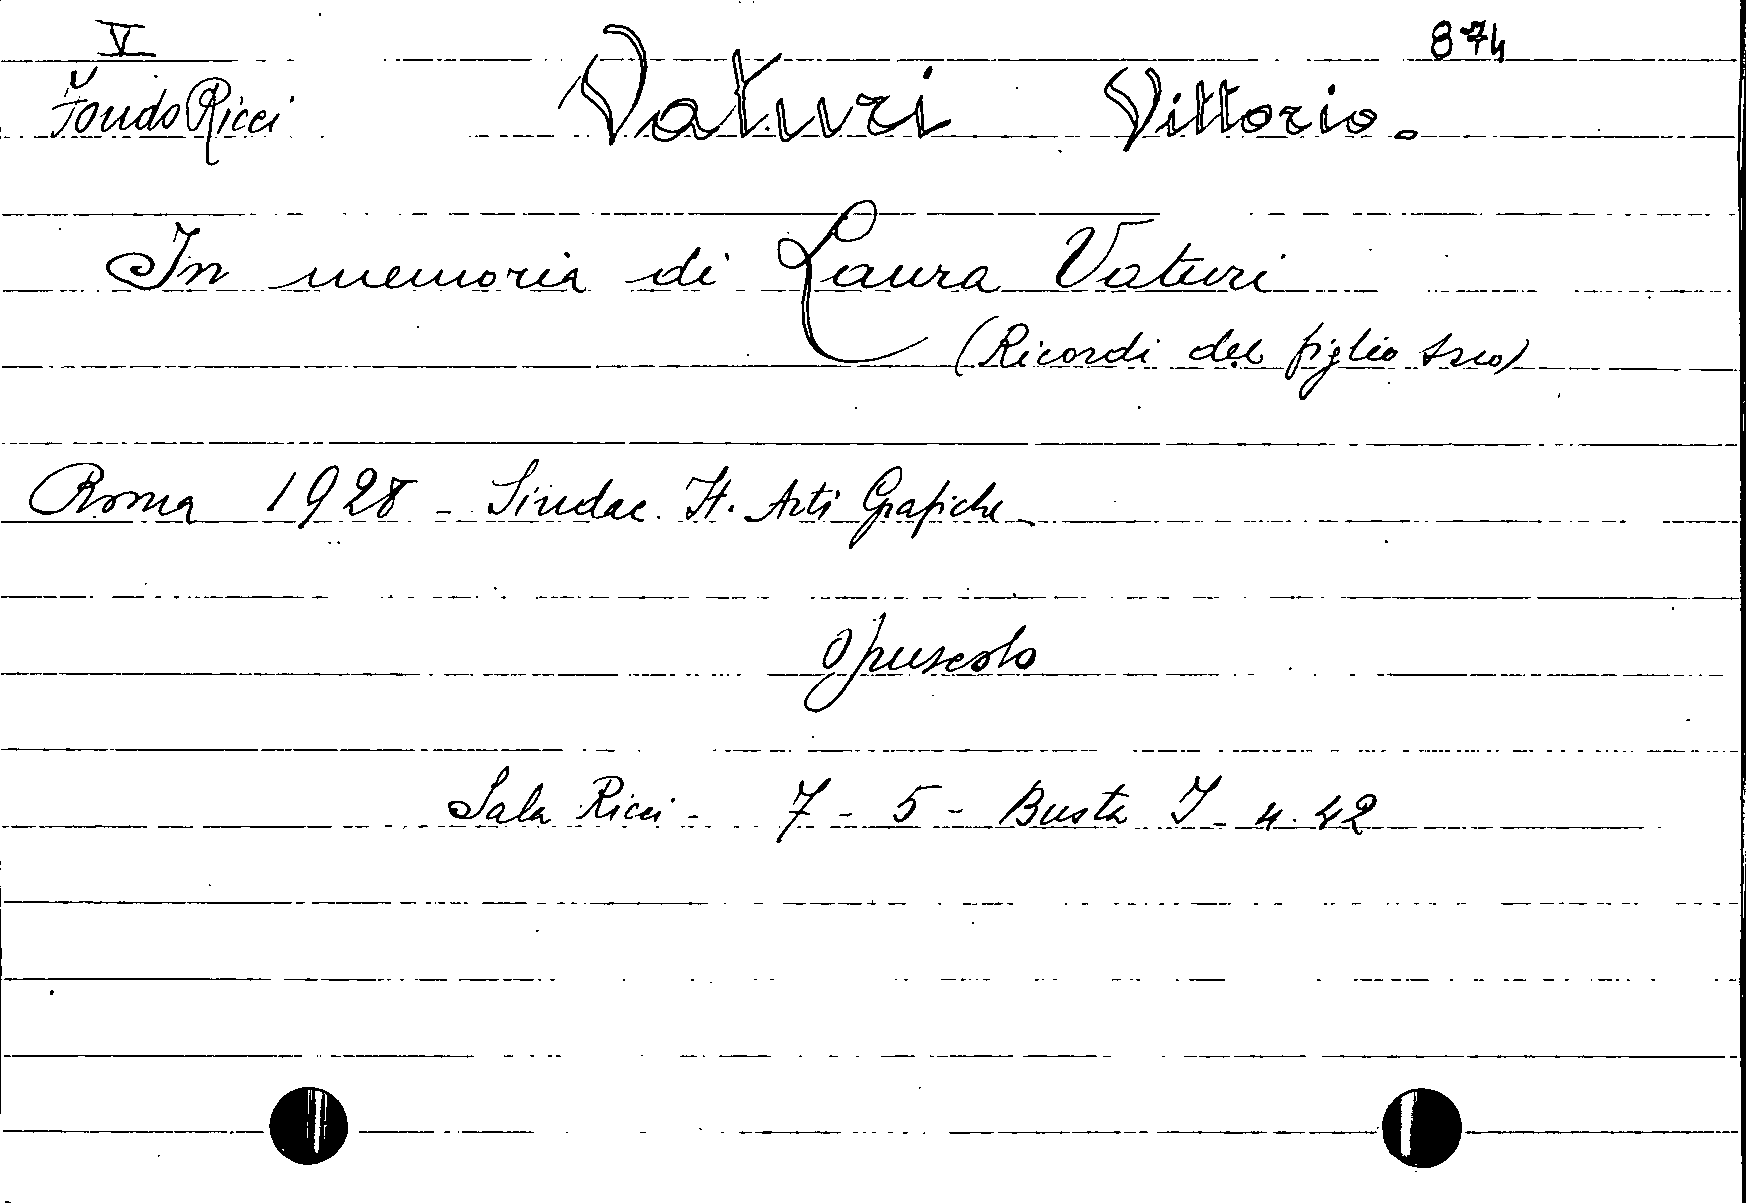 V 874
Fondo Ricci Vaturi Vittorio.
In memoria di Laura Vaturi
(Ricordi del figlio suo)
Roma 1928 - Sindac. It. Arti Grafiche
Opuscolo
Sala Ricci - 7 - 5 - Busta I - n. 42